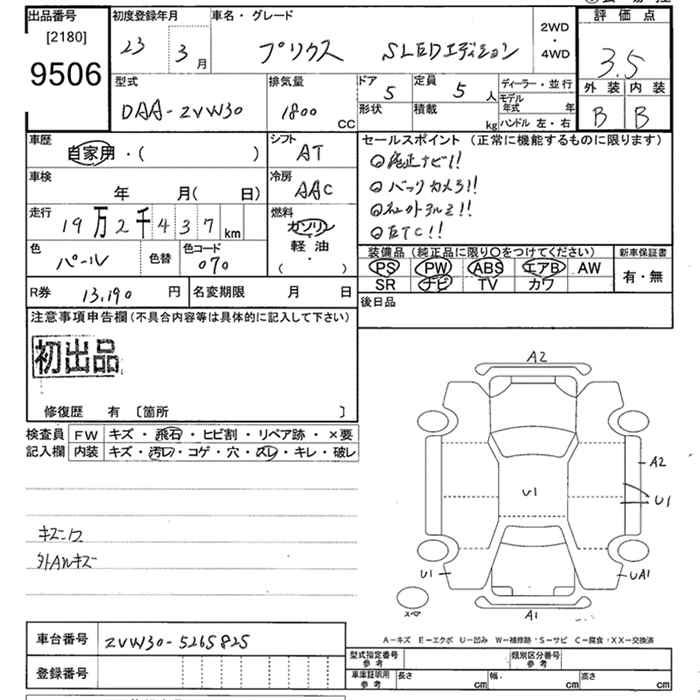 出品番号
[2180]
9506
初度登録年月
23 3 月
車名・グレード
プリウス SLEDエディション
2WD
・
4WD
評価点
3.5
外装 内装
B B
型式
DAA-ZVW30
排気量
1800 CC
ドア 5
形状
定員 5 人
積載 kg
ディーラー・並行
モデル年式 年
ハンドル 左・右
車歴
自家用・( )
シフト
AT
車検
年 月( 日)
冷房
AAC
走行
19万2千437 km
燃料
ガソリン
軽油
( ・ )
色
パール
色替
色コード
070
セールスポイント (正常に機能するものに限ります)
◎純正ナビ!!
◎バックカメラ!!
◎ETC!!
装備品(純正品に限り〇をつけてください)
PS PW ABS エアB AW
SR ナビ TV カワ
新車保証書
有・無
R券 13,190 円
名変期限 月 日
後日品
注意事項申告欄(不具合内容等は具体的に記入して下さい)
初出品
修復歴 有 〔箇所 〕
検査員 FW キズ・飛石・ヒビ割・リペア跡・×要
記入欄 内装 キズ・汚レ・コゲ・穴・スレ・キレ・破レ
外AWキズ
A2
A2
U1
U1
U1
UA1
A1
スペア
A-キズ E-エクボ U-凹み W-補修跡・S-サビ C-腐食・XX-交換済
車台番号 ZVW30-5265825
登録番号
型式指定番号
参考
類別区分番号
参考
車庫証明用
参考
長さ cm
幅. cm
高さ cm